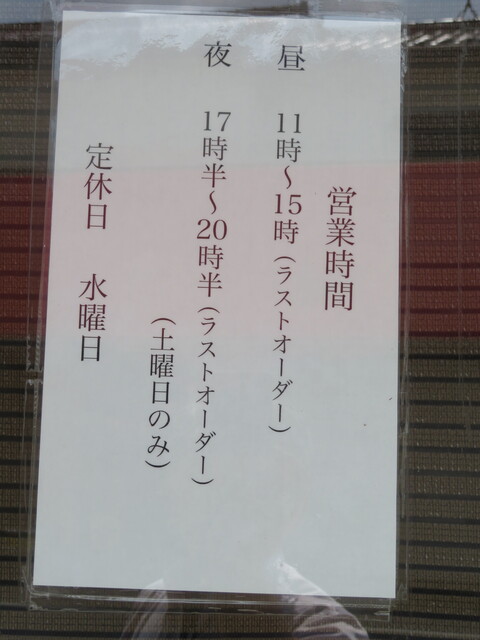 営業時間
昼 11時〜15時(ラストオーダー)
夜 17時半〜20時半(ラストオーダー)
(土曜日のみ)
定休日 水曜日